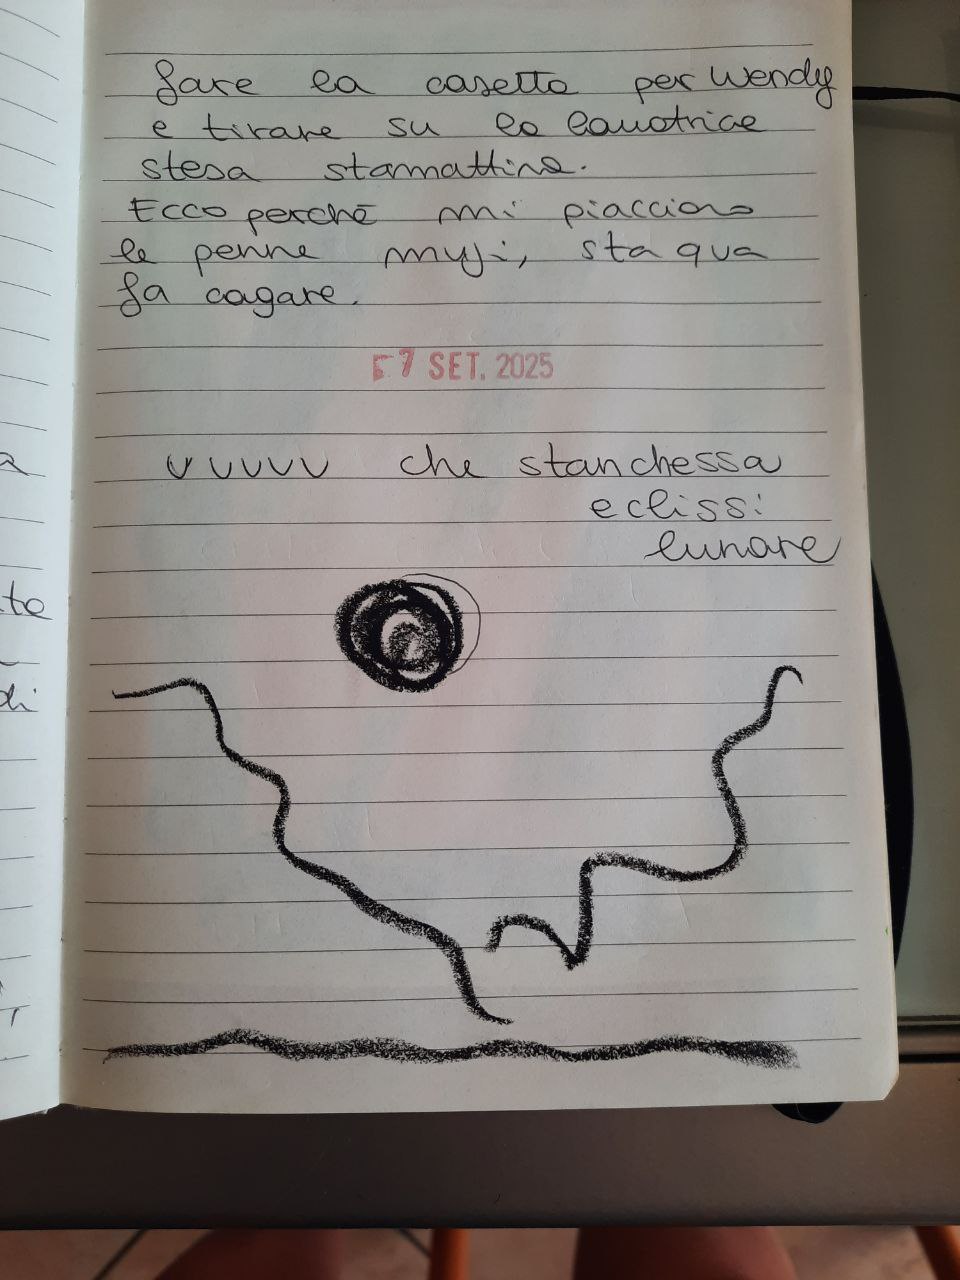 fare la casetta per Wendy
e tirare su la lavatrice
stesa stamattina.
Ecco perchē mi piacciono
le penne muji, sta qua
fa cagare.
7 SET. 2025
vuuuu che stanchessa
eclissi
lunare
a
te
di